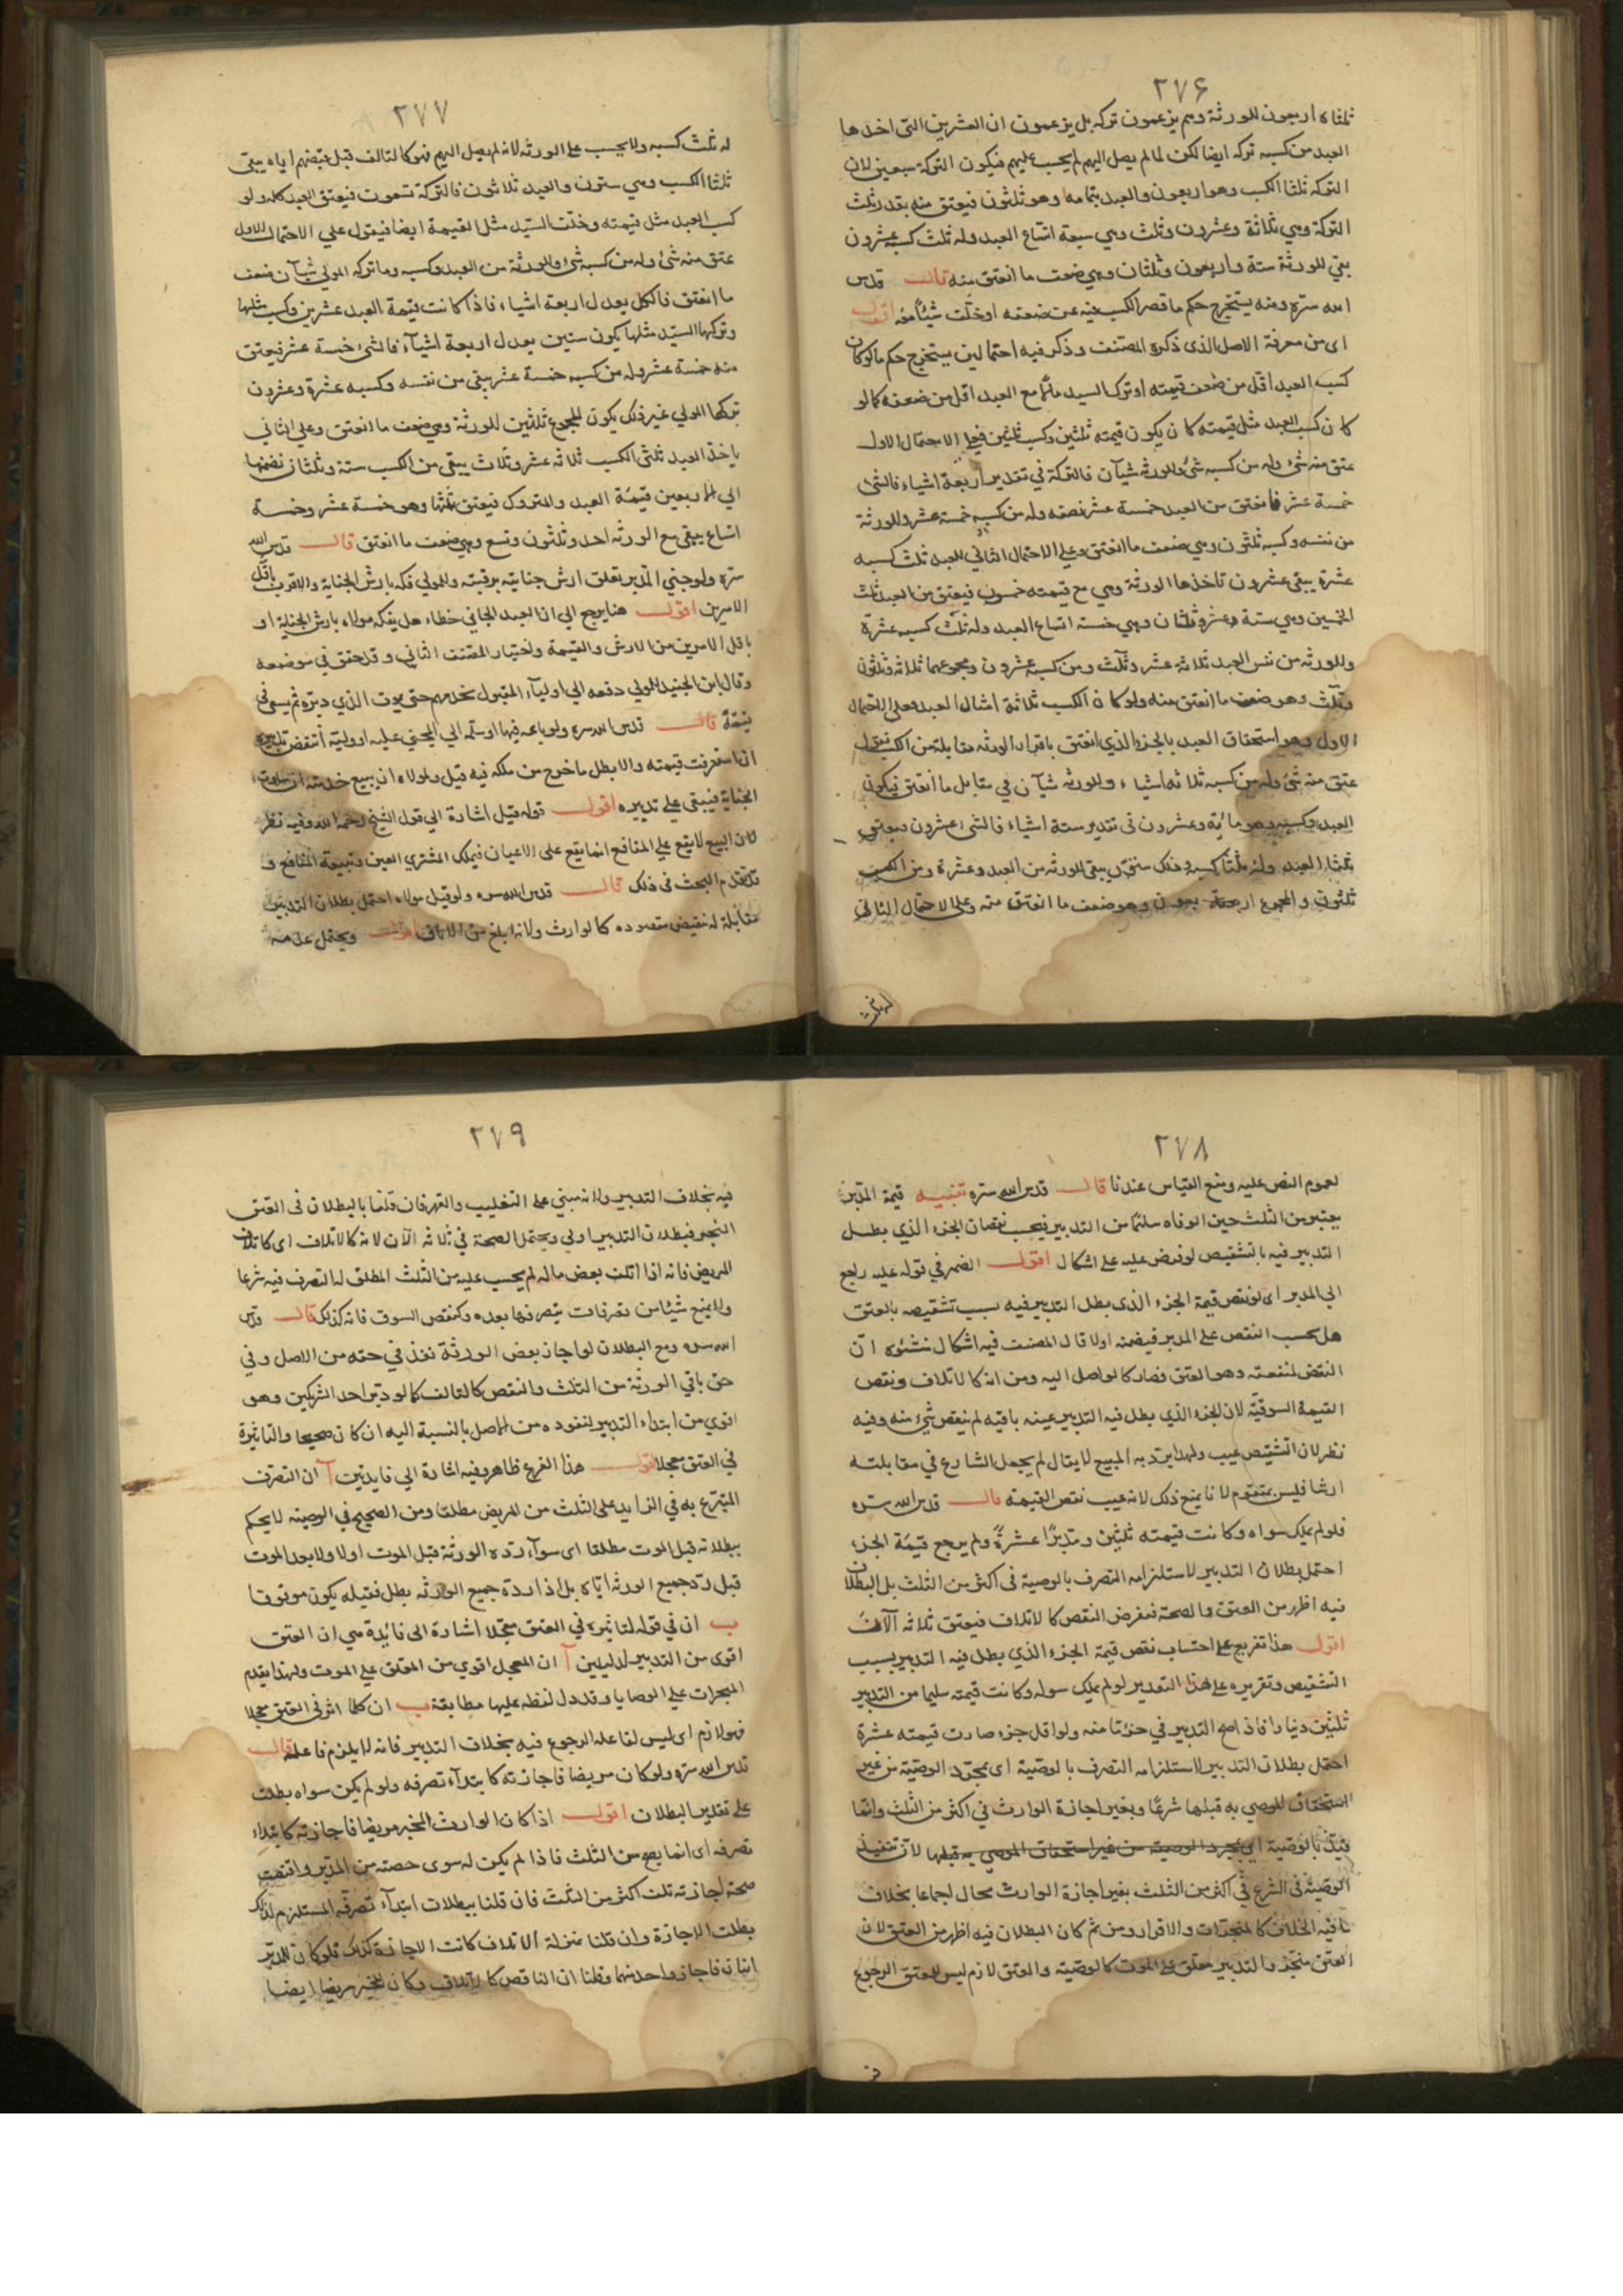 ٢٧۶
ثلثاه اربعون للورثة وهم يزعمون تركه بل يزعمون ان العشرين التى اخذها
العبد من كسبه تركه ايضا لكن لما لم يصل اليهم لم يحسب عليهم فيكون التركة سبعين لان
التركه ثلثا الكسب وهو اربعون والعبد بتمامه وهو ثلثون فيعتق منه بقدر ثلث
التركة وهي ثلاثة وعشرون وثلث وهي سبعة اتساع العبد وله ثلث كسبه عشرون
بقي للورثة ستة واربعون وثلثان وهي ضعف ما انعتق منه قالـــ قدس
الله سره ومنه يستخرج حكم ما قصر الكسب فيه عن ضعفه او خلف شيئا معه اقول
اى من معرفة الاصل الذى ذكره المصنف وذكر فيه احتمالين يستخرج حكم ما لو كان
كسب العبد اقل من ضعف قيمته او ترك السيد مالا مع العبد اقل من ضعفه كما لو
كان كسب العبد مثل قيمته كان يكون قيمته ثلثين وكسب ثلثين فعلى الاحتمال الاول
عتق منه شئ وله من كسبه شئ وللورثه شيآن فالتركة في تقدير اربعة اشياء فالشئ
خمسة عشر فانعتق من العبد خمسة عشر نصفه وله من كسبه خمسة عشر وللورثة
من نفسه وكسبه ثلثون وهي ضعف ما انعتق وعلى الاحتمال الثاني للعبد ثلث كسبه
عشرة يبقى عشرون تاخذها الورثة وهي مع قيمته خمسون فيعتق من العبد ثلث
الخمسين وهي ستة وعشر وثلثان وهي خمسة اتساع العبد وله ثلث كسبه عشرة
وللورثه من نفس العبد ثلاثه عشر وثلث ومن كسبه عشرون ومجموعهما ثلاثه وثلثون
وثلث وهو ضعف ما انعتق منه ولو كان الكسب ثلاثة امثال العبد فعلى الاحتمال
الاول وهو استحقاق العبد بالجزء الذي انعتق باقرار الورثه مقابله من الكسب نقول
عتق منه شئ وله من كسبه ثلاثه اشياء وللورثه شيآن في مقابل ما انعتق فيكون
العبد وكسبه وهو مائه وعشرون فى تقدير ستة اشياء فالشئ عشرون فيعتق
ثلثا العبد وله ثلثا كسبه وذلك ستون يبقى للورثه من العبد وعشرة ومن الكسب
ثلثون والمجموع اربعون وهو ضعف ما انعتق منه وعلى الاحتمال الثاني
له ثلث
٢٧٧
له ثلث كسبه ولا يحسب على الورثه لانه لم يصل اليهم فهو كالتالف قبل قبضهم اياه يبقى
ثلثا الكسب وهي ستون والعبد ثلاثون فالتركة تسعون فيعتق العبد كله ولو
كسب العبد مثل قيمته وخلف السيد مثل القيمة ايضا فيقول على الاحتمال الاول
عتق منه شئ وله من كسبه شئ وللورثة من العبد وكسبه وما تركه المولى شيآن ضعف
ما انعتق فالكل يعدل اربعة اشياء فاذا كانت قيمة العبد عشرين وكسب مثلها
وتركها السيد مثلها يكون ستين يعدل اربعة اشيآء فالشئ خمسة عشر فيعتق
منه خمسة عشر وله من كسبه خمسة عشر يبقى من نفسه وكسبه عشرة وعشرون
تركها المولى غير ذلك يكون المجموع ثلثين للورثة وهي ضعف ما انعتق وعلى الثاني
ياخذ العبد ثلثى الكسب ثلاثه عشر وثلاث يبقى من الكسب ستة وثلثان نضمها
الى اربعين قيمة العبد والمتروك فيعتق ثلثها وهو خمسة عشر وخمسة
اتساع يبقى مع الورثه احد وثلثون وتسع وهي ضعف ما انعتق قالـــ قدس الله
سره ولو جنى المدبر تعلق ارش جنايته برقبته وللمولى فكه بارش الجناية والاقرب باقل
الامرين اقولـــ هنا يرجع الى ان العبد الجاني خطاء هل يفكه مولاه بارش الجناية او
باقل الامرين من الارش والقيمة واختيار المصنف الثاني وقد حقق في موضعه
وقال ابن الجنيد للمولى دفعه الى اولياء المقتول يخدمهم حتى يموت الذي دبره ثم يسعى فى
قيمة قالـــ قدس الله سره ولو باعه فيها او سلمه الى المجني عليه او وليه انتقض تدبيره
ان استغرقت قيمته والا بطل ما خرج من ملكه فيه قيل ولولاه ان يبيع خدمته ان ساوت
الجناية فيبقى على تدبيره اقولـــ قوله قيل اشارة الى قول الشيخ رحمه الله وفيه نظر
لان البيع لا يقع على المنافع انما يقع على الاعيان فيملك المشترى العين وتبيعة المنافع و
قد تقدم البحث فى ذلك قالـــ قدس الله سره ولو قيل مولاه احتمل بطلان التدبير
مقابلة له بنقيض مقصوده كالوارث ولانه ابلغ من الاباق اقولـــ ويحتمل عدمه
٢٧٨
لعموم النص عليه ومنع القياس عندنا قالـــ قدس الله سره تنبيـه قيمة المدبر
يعتبر من الثلث حين الوفاه سليما من التدبير فيحسب نقصان الجزء الذي بطل
التدبير فيه بالتشقيص لو فرض عليه على اشكال اقولـــ الضمير في قوله عليه راجع
الى المدبر اى لو نقص قيمة الجزء الذى بطل التدبير فيه بسبب تشقيصه بالعتق
هل يحسب النقص على المدبر فيضمنه اولا قال المصنف فيه اشكال منشئوه ان
النقص لمنفعته وهو العتق فصار كالواصل اليه ومن انه كالاتلاف ونقص
القيمة السوقية لان الجزء الذي بطل فيه التدبير عينه باقيه لم ينقص شئ منه وفيه
نظر لان التشقيص عيب ولهذا يرد به المبيع لا يقال لم يجعل الشارع في مقابلته
ارشا فليس بمتقوم لانا نمنع ذلك لانه عيب نقص القيمته قالـــ قدس الله سره
فلو لم يملك سواه وكانت قيمته ثلثين ومدبرا عشرة ولم يرجع قيمة الجزء
احتمل بطلان التدبير لاستلزامه التصرف بالوصية فى اكثر من الثلث بل البطلان
فيه اظهر من العتق والصحة نفرض النقص كالاتلاف فيعتق ثلاثه الآف
اقولـــ هذا تفريع على احتساب نقص قيمة الجزء الذي بطل فيه التدبير بسبب
التشقيص وتقريره على هذا التقدير لو لم يملك سواه وكانت قيمته سليما من التدبير
ثلثين دينارا فاذا صح التدبير في جزء منه ولو اقل جزء صارت قيمته عشرة
احتمل بطلان التدبير لاستلزامه التصرف بالوصية اى بمجرد الوصية من غير
استحقاق الموصي به قبلها شرعا وبغير اجازة الوارث في اكثر من الثلث وانما
قيد بالوصية اى بمجرد الوصية من غير استحقاق الموصي به قبلها لان تنفيذ
الوصية فى الشرع في اكثر من الثلث بغير اجازة الوارث محال اجماعا بخلاف
ما فيه الخلاف كالمنجزات والاقرار ومن ثم كان البطلان فيه اظهر من العتق لان
العتق منجز والتدبير معلق على الموت كالوصية والعتق لازم ليس للمعتق الرجوع
٢٧٩
فيه بخلاف التدبير ولانه مبني على التغليب والقهر فان قلنا بالبطلان فى العتق
المنجز فبطلان التدبير اولى ويحتمل الصحة في ثلاثه الآن لانه كالاتلاف اى كاتلاف
المريض فانه اذا اتلف بعض ماله لم يحسب عليه من الثلث المطلق له التصرف فيه شرعا
ولا يمنع شيئا من تصرفات يتصرفها بعده وكنقص السوق فانه كذلك قالـــ قدس
الله سره ومع البطلان لو اجاز بعض الورثة نفذ في حقه من الاصل وفي
حق باقي الورثة من الثلث والنقص كالتالف كما لو دبر احد الشركين وهو
اقوى من ابتداء التدبير لنفوذه من الاصل بالنسبة اليه ان كان صحيحا والتاثيرة
في العتق معجلا اقولـــ هذا الفرع ظاهر وفيه اشارة الى فايدتين آ ان التصرف
المتبرع به في الزايد على الثلث من المريض مطلقا ومن الصحيح في الوصية لا يحكم
ببطلانه قبل الموت مطلقا اى سواء رده الورثة قبل الموت اولا ولا بعد الموت
قبل رد جميع الورثه اياه بل اذا رده جميع الورثه بطل فقبله يكون موقوفا
ب ان في قوله لتاثيره في العتق معجلا اشارة الى فائدة هي ان العتق
اقوى من التدبير لدليلين آ ان المعجل اقوى من المعلق على الموت ولهذا يقدم
المنجزات على الوصايا وقد دل لفظه عليها مطابقة ب ان كلما اثر فى العتق معجلا
فهو لازم اى ليس لفاعله الرجوع فيه بخلاف التدبير فانه لا يلزم فاعله قالـــ
قدس الله سره ولو كان مريضا فاجازته كابتدآء تصرفه ولو لم يكن سواه بطلت
على تقدير البطلان اقولـــ اذا كان الوارث المجيز مريضا فاجازته كابتداء
تصرفه اى انما يصح من الثلث فاذا لم يكن له سوى حصته من المدبر واقتضت
صحة اجازته تلف اكثر من الثلث فان قلنا ببطلان ابتدآء تصرفه المستلزم لذلك
بطلت الاجازة وان قلنا بمنزلة الاتلاف كانت الاجازة كذلك فلو كان المدبر
اثنان فاجاز واحد منهما وقلنا ان الناقص كالاتلاف وكان المجيز مريضا ايضا